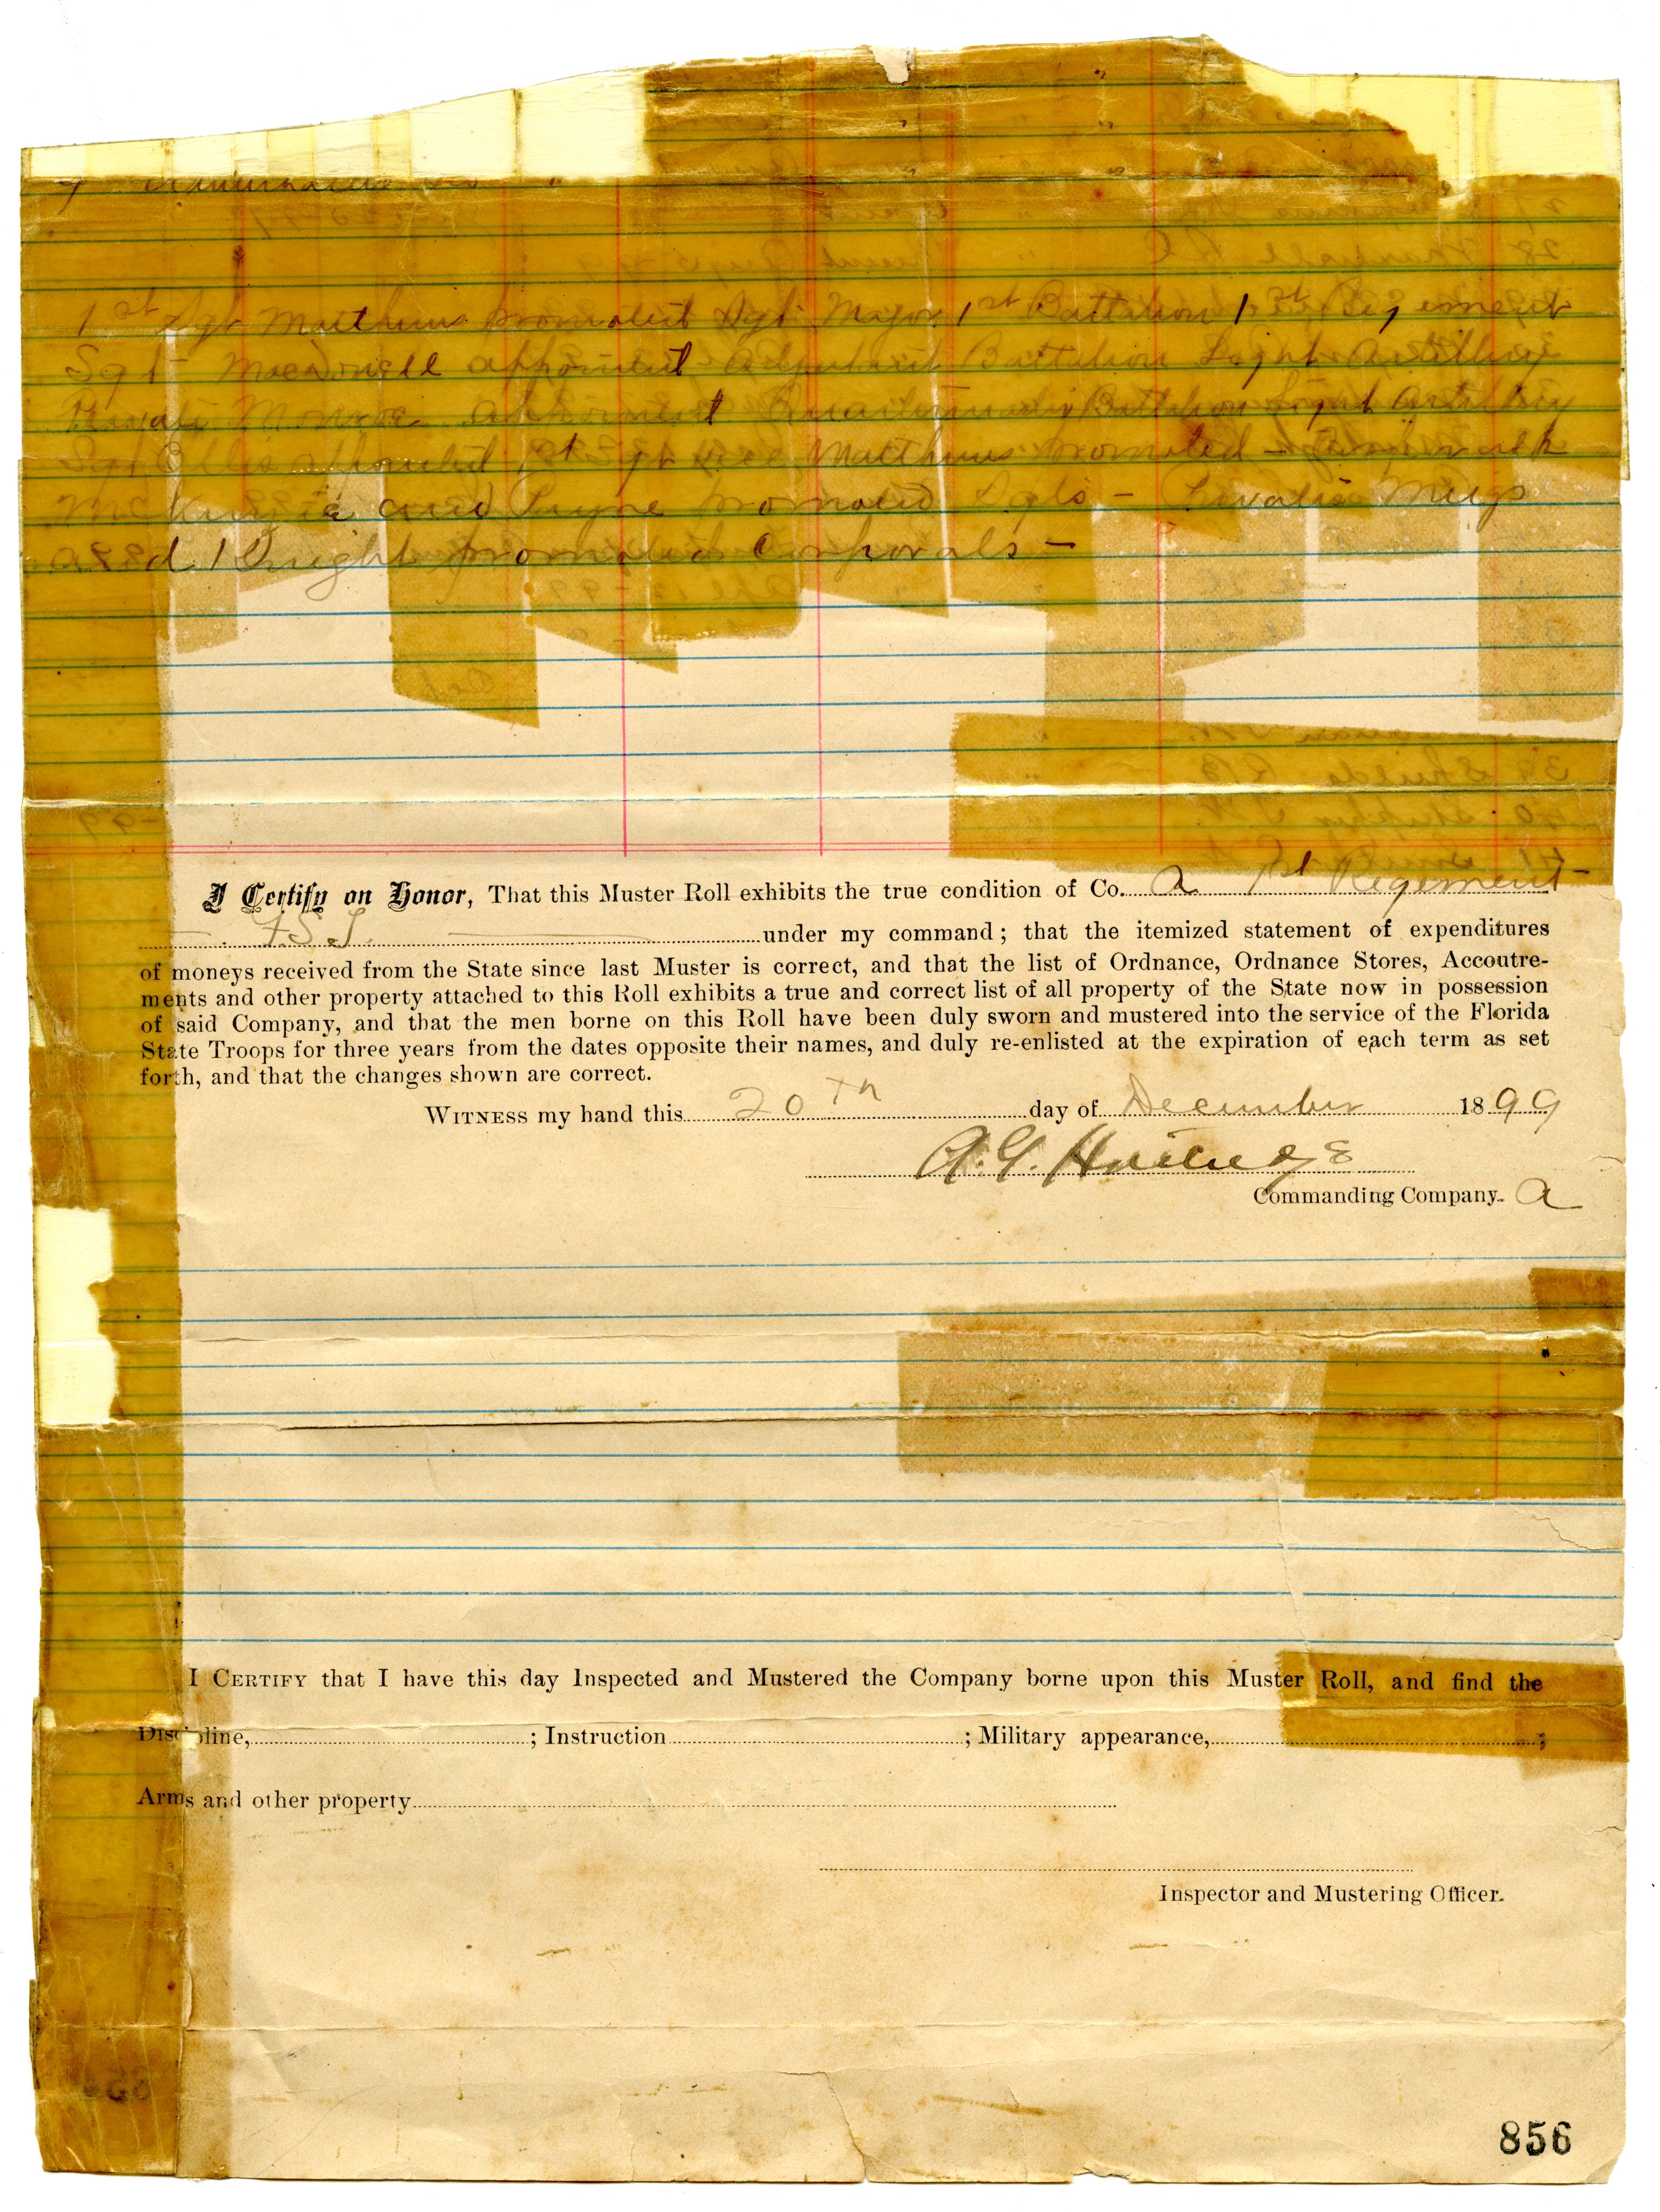 1st Sgt Matthews promoted Sgt Major 1st Battalion 1st Regiment
Sgt MacDonell appointed Adjutant Battalion Light Artillery
Private Monroe appointed Quartermaster Battalion Light Artillery
Sgt Ellis appointed 1st Sgt vice Matthews promoted
McKenzie and Payne promoted Sgts - Privates Meigs
and Knight promoted Corporals -
I Certify on Honor, That this Muster Roll exhibits the true condition of Co. A 1st Regement
F.S.T. under my command; that the itemized statement of expenditures
of moneys received from the State since last Muster is correct, and that the list of Ordnance, Ordnance Stores, Accoutre-
ments and other property attached to this Roll exhibits a true and correct list of all property of the State now in possession
of said Company, and that the men borne on this Roll have been duly sworn and mustered into the service of the Florida
State Troops for three years from the dates opposite their names, and duly re-enlisted at the expiration of each term as set
forth, and that the changes shown are correct.
WITNESS my hand this 20th day of December 1899
A. G. Hartridge
Commanding Company A
I CERTIFY that I have this day Inspected and Mustered the Company borne upon this Muster Roll, and find the
Discipline, ; Instruction ; Military appearance, ;
Arms and other property
Inspector and Mustering Officer.
856